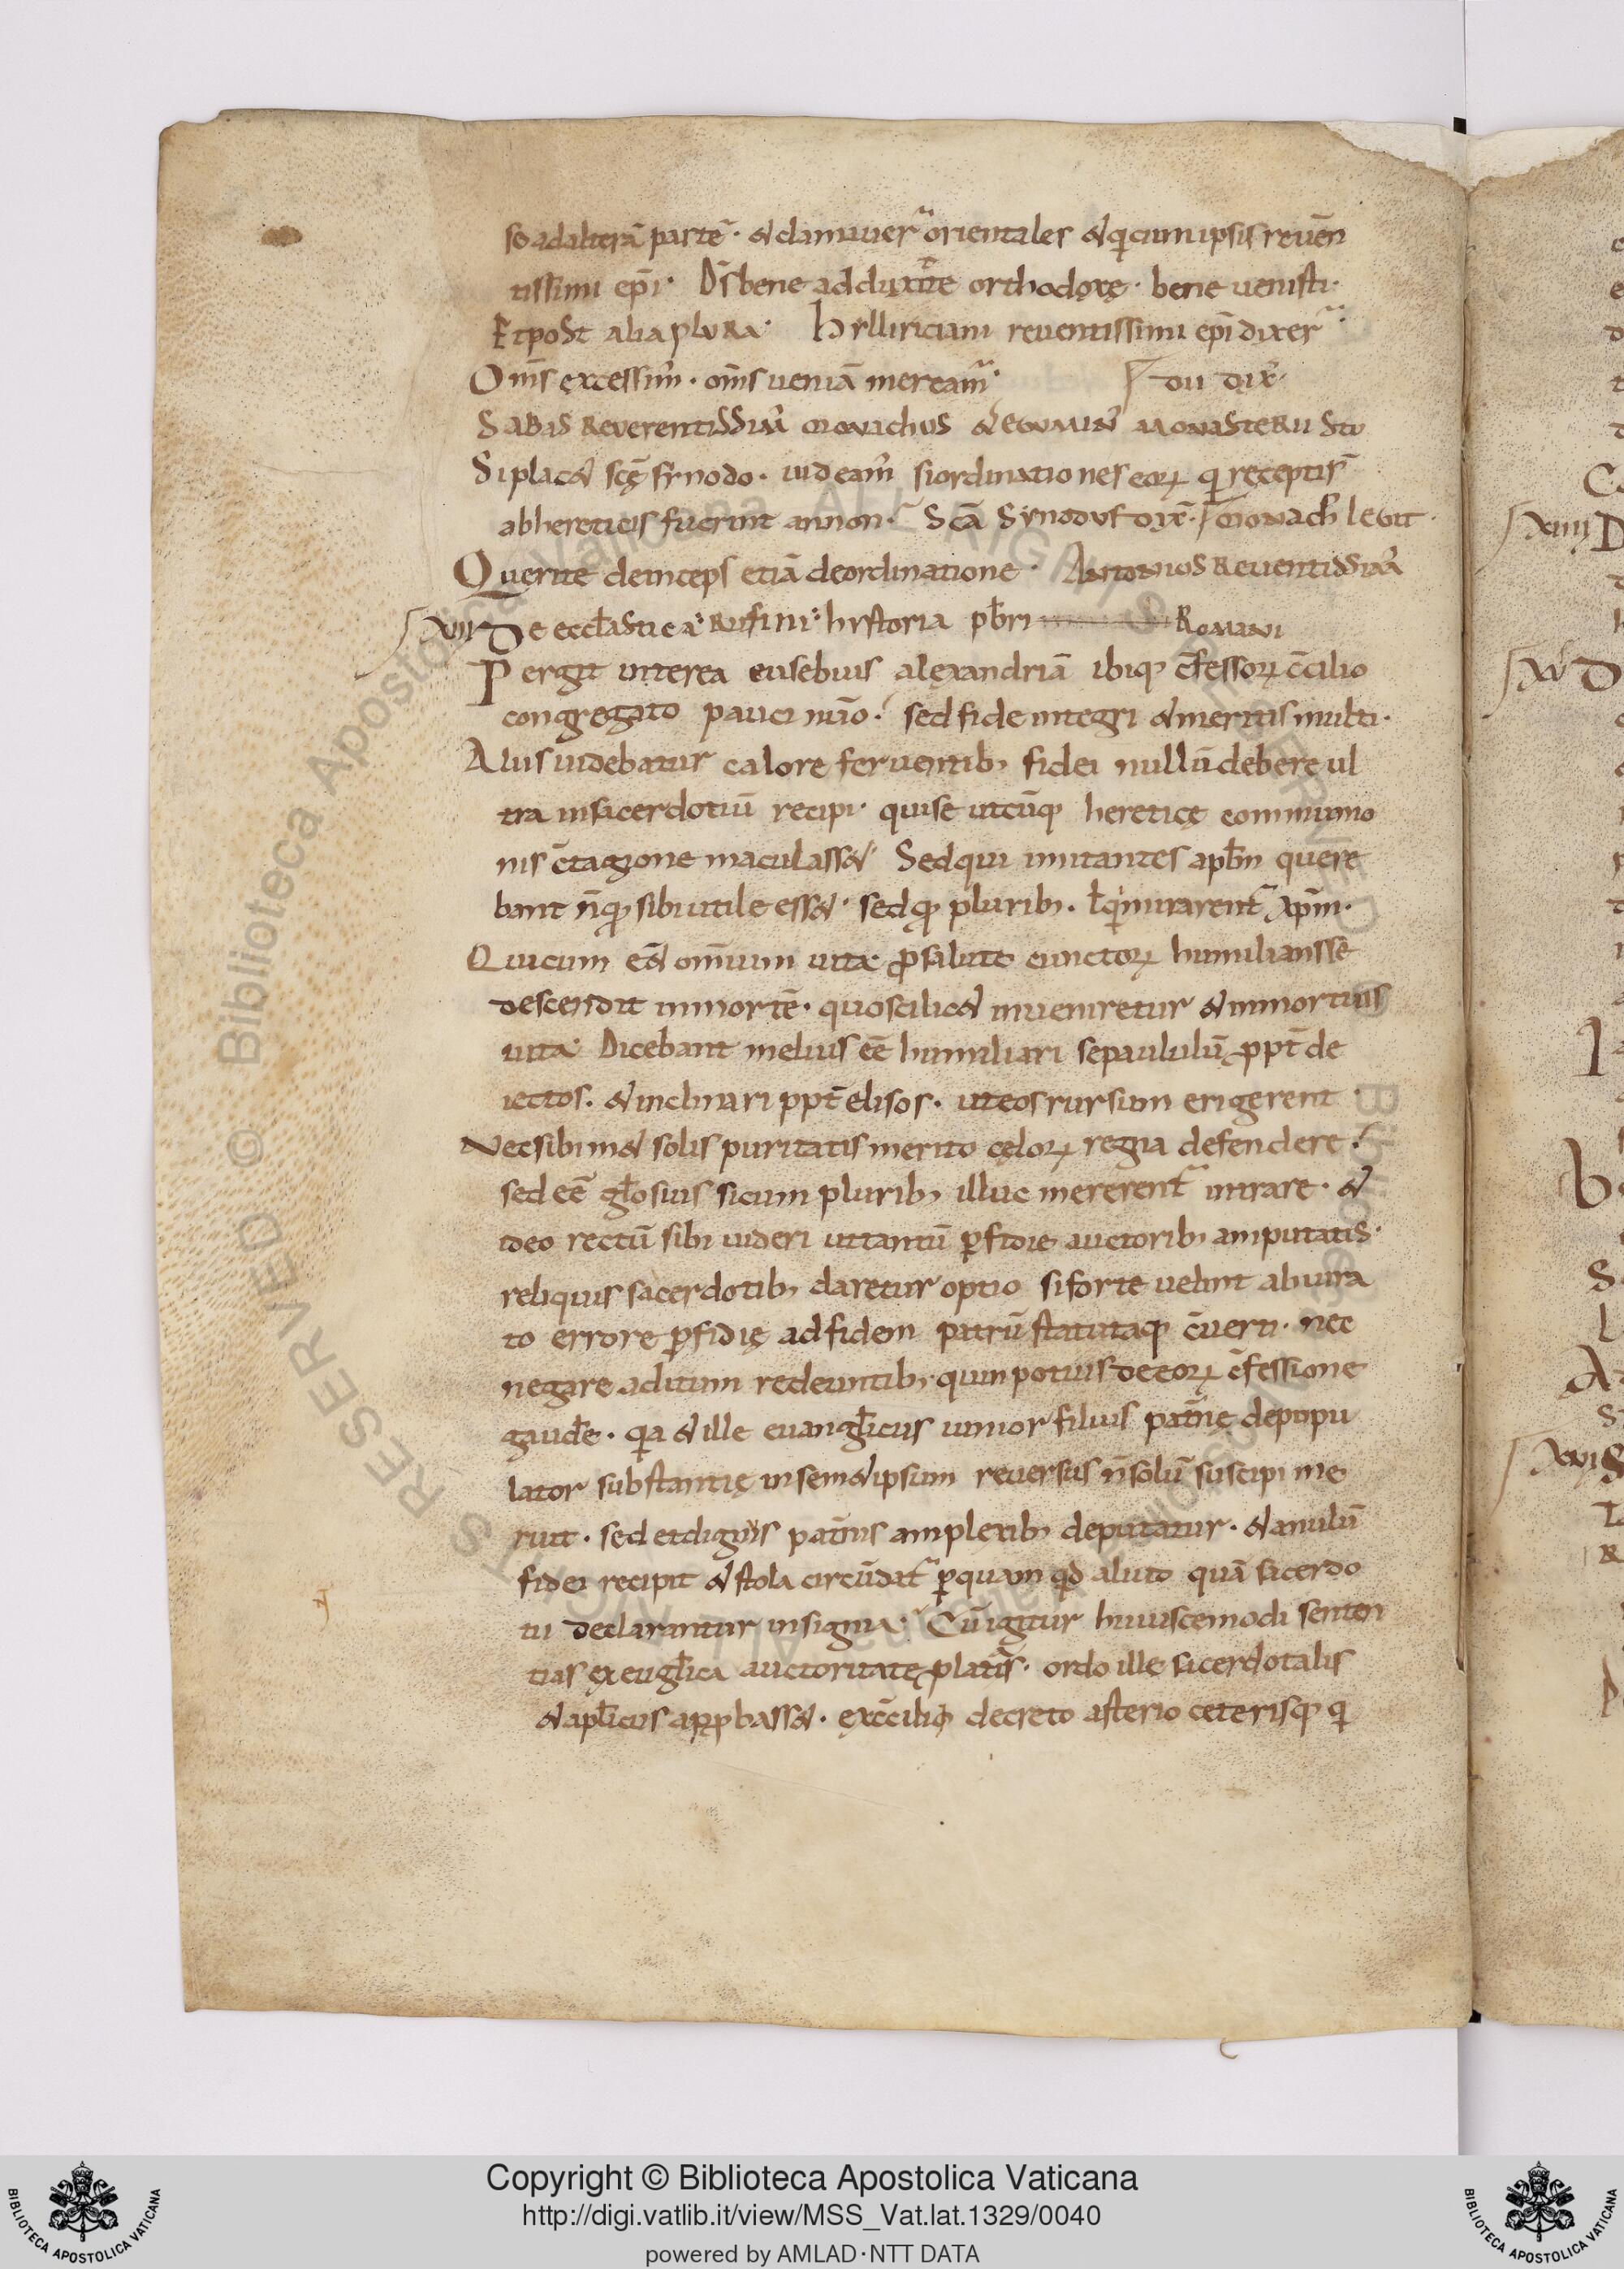 se ad alterā partē · & clamauer̄ orientales & q̇ cum ipsis reuēn
tissimi ep̄i · D̄s bene adduxit te orthodoxę · bene uenisti ·
Et post alia plura · Hylliriciani reuentissimi ep̄i dixer̄ ·
Om̄s excessim̄ · om̄s ueniā meream̄ · dii dix̄ ·
Sabas reverentissim̄ monachus & monasterii stu
Si plac& sc̄ę synodo · uideam̄ si ordinationes eoꝝ q̇ receptis̄
ab hereticis fuerint annon · Sc̄a synodus dix̄ · monach̄ legit ·
Querite deinceps etiā de ordinatione · Antonius reuentissim̄
XIII De eccl̄astica Rufini hystoria pb̄ri Romani
Pergit interea eusebius alexandriā ibiq; c̄fessoꝝ c̄cilio
congregato pauci num̄o · sed fide integri & meritis multi ·
Aliis uidebatur calore feruentib; fidei nullū debere ul
tra in sacerdotiū recipi · qui se utcūq; hereticę communio
nis c̄tagione maculass& · Sed qui imitantes apl̄m quere
bant n̄ q̇ sibi utile ess& · sed q̇ plurib; · l̄ q̇ imitarent̄ xp̄m ·
Qui cum e& om̄ium uita ꝓ salute cunctoꝝ humilians se
descendit in mortē · quo scilic& inueniretur & in mortuis
uita · Dicebant melius eē humiliari se paululū ꝓpt̄ de
iectos · & inclinari ppt̄ elisos · ut eos rursum erigerent ·
Nec sibi m& solis puritatis merito cęloꝝ regna defendere ·
sed eē gl̄osius si cum plurib; illuc mererent̄ intrare · &
ideo rectū sibi uideri ut tantū ꝑfidie auctorib; amputatis ·
reliquis sacerdotib; daretur optio si forte uelint abiura
to errore ꝑfidię ad fidem patrū statutaq; c̄uerti · nec
negare aditum redeuntib; quin potius de eoꝝ c̄fessione
gaud̄e · q̇a & ille euangl̄icus iunior filius pat̄nę depopu
lator substantię in sem&ipsum reuersus n̄ solū suscipi me
ruit · sed et dignus pat̄nis amplexib; deputatur · & anulū
fidei recipit & stola circūdat̄ ꝑ quam qd̄ aliud quā sacerdo
tii declarantur insignia · Cū igitur huiuscemodi senten
tias ex eugl̄ica auctoritate ꝓlatis · ordo ille sacerdotalis
& apl̄icus apꝓbass& · ex c̄cilii decreto asterio ceterisq; q̇
Copyright © Biblioteca Apostolica Vaticana
http://digi.vatlib.it/view/MSS_Vat.lat.1329/0040
powered by AMLAD·NTT DATA